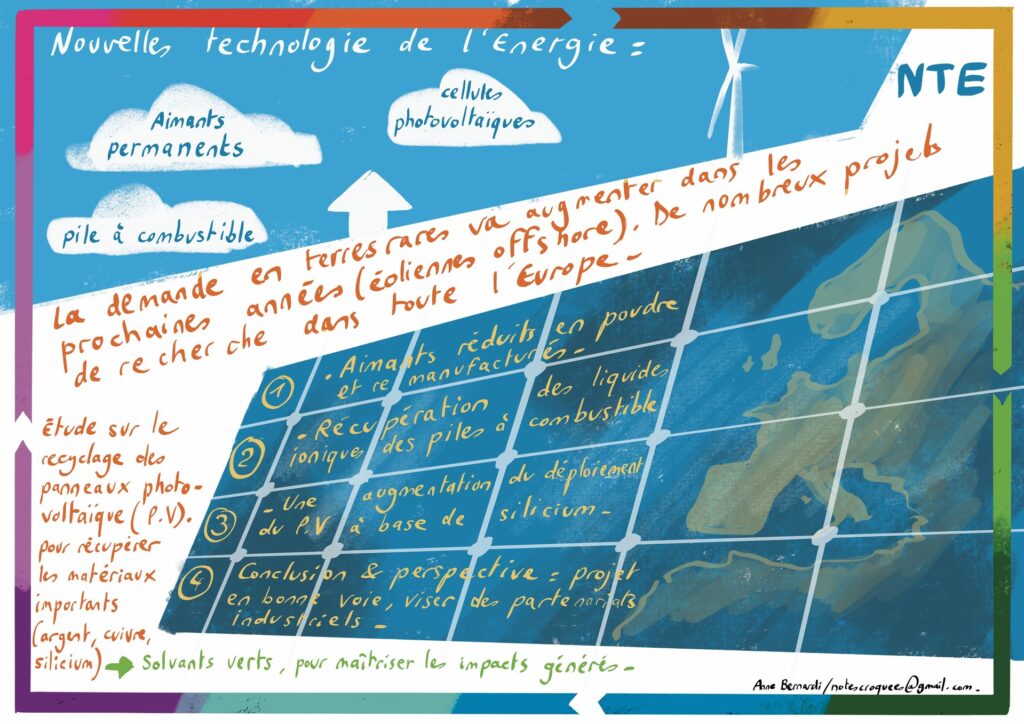 Nouvelles technologie de l'Energie =
NTE
Aimants
permanents
cellules
photovoltaïques
pile à combustible
La demande en terres rares va augmenter dans les
prochaines années (éoliennes offshore). De nombreux projets
de recherche dans toute l'Europe -
1 - Aimants réduits en poudre
et remanufacturés -
2 - Récupération des liquides
ioniques des piles à combustible
3 - Une augmentation du déploiement
du P.V à base de silicium -
4 Conclusion & perspective = projet
en bonne voie, viser des partenariats
industriels -
Étude sur le
recyclage des
panneaux photo-
voltaïque (P.V).
pour récupérer
les matériaux
importants
(argent, cuivre,
silicium) → Solvants verts, pour maîtriser les impacts générés -
Anne Bernardi/notescroquees@gmail.com -